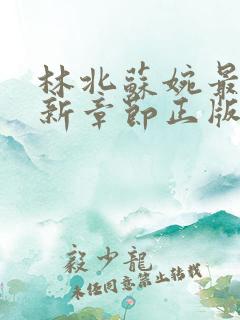 林北蘇婉最
新章節正版
毅少龍
未经同意禁止转载